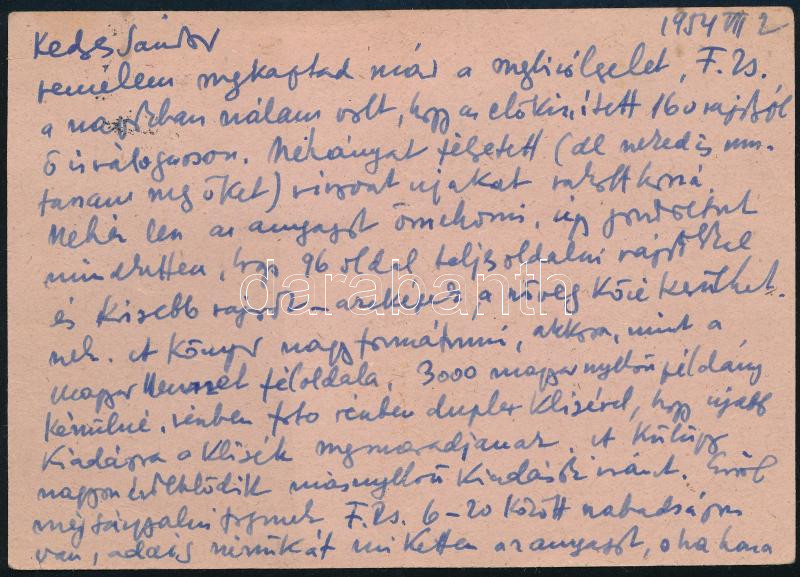 1954 VII 2
Kedves Sándor
remélem megkaptad már a meghívólevelet, F. Zs.
a napokban nálam volt, hogy az előkészített 160 rajzból
ő is válogasson. Néhányat félretett (de neked is mu-
tassam meg őket) viszont ujakat rakott hozzá.
Nehéz lesz az anyagot összehozni, úgy gondoltuk
mindketten, hogy 96 oldal teljes oldalni rajzokkal
és kisebb rajzok – a szöveg közé kerülhet-
nek. A könyv nagy formátumú, akkora, mint a
Magyar Nemzet féloldala, 3000 magyarnyelvű példány
készülne, részben foto részben duplex klisével, hogy ujabb
kiadásra a klisék megmaradjanak. A Külügy
nagyon érdeklődik másnyelvű kiadások iránt. Erről
még tárgyalni fognak F. Zs. 6–20 között szabadságon
van, addig nézzük át mi ketten az anyagot, aha haza
darabanth